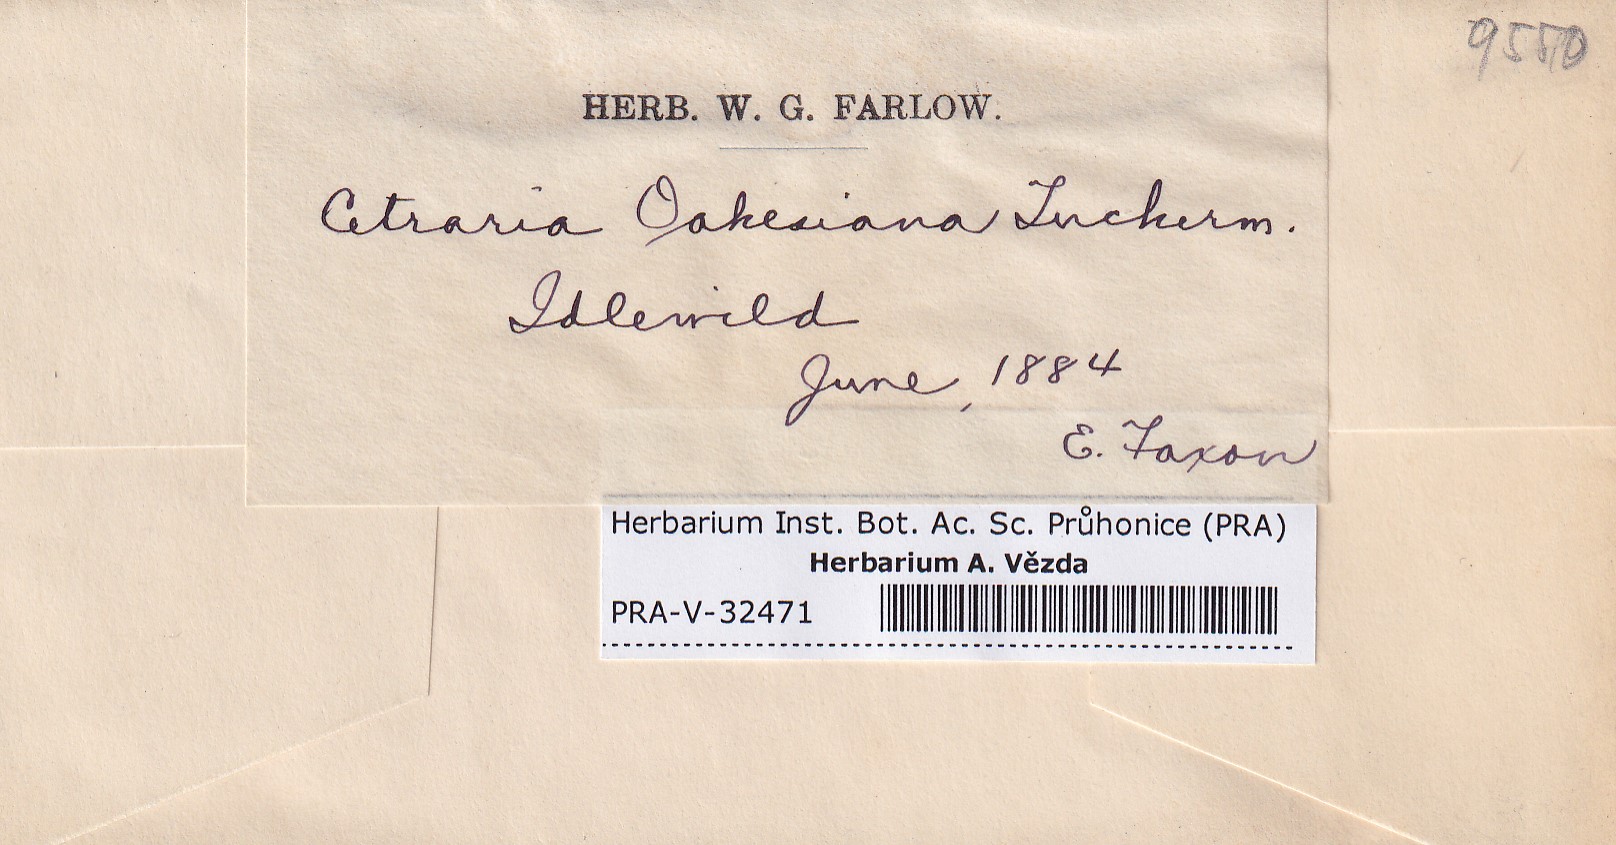 9550
HERB. W. G. FARLOW.
Cetraria Oakesiana Tuckerm.
Idlewild
June, 1884
E. Faxon
Herbarium Inst. Bot. Ac. Sc. Průhonice (PRA)
Herbarium A. Vězda
PRA-V-32471